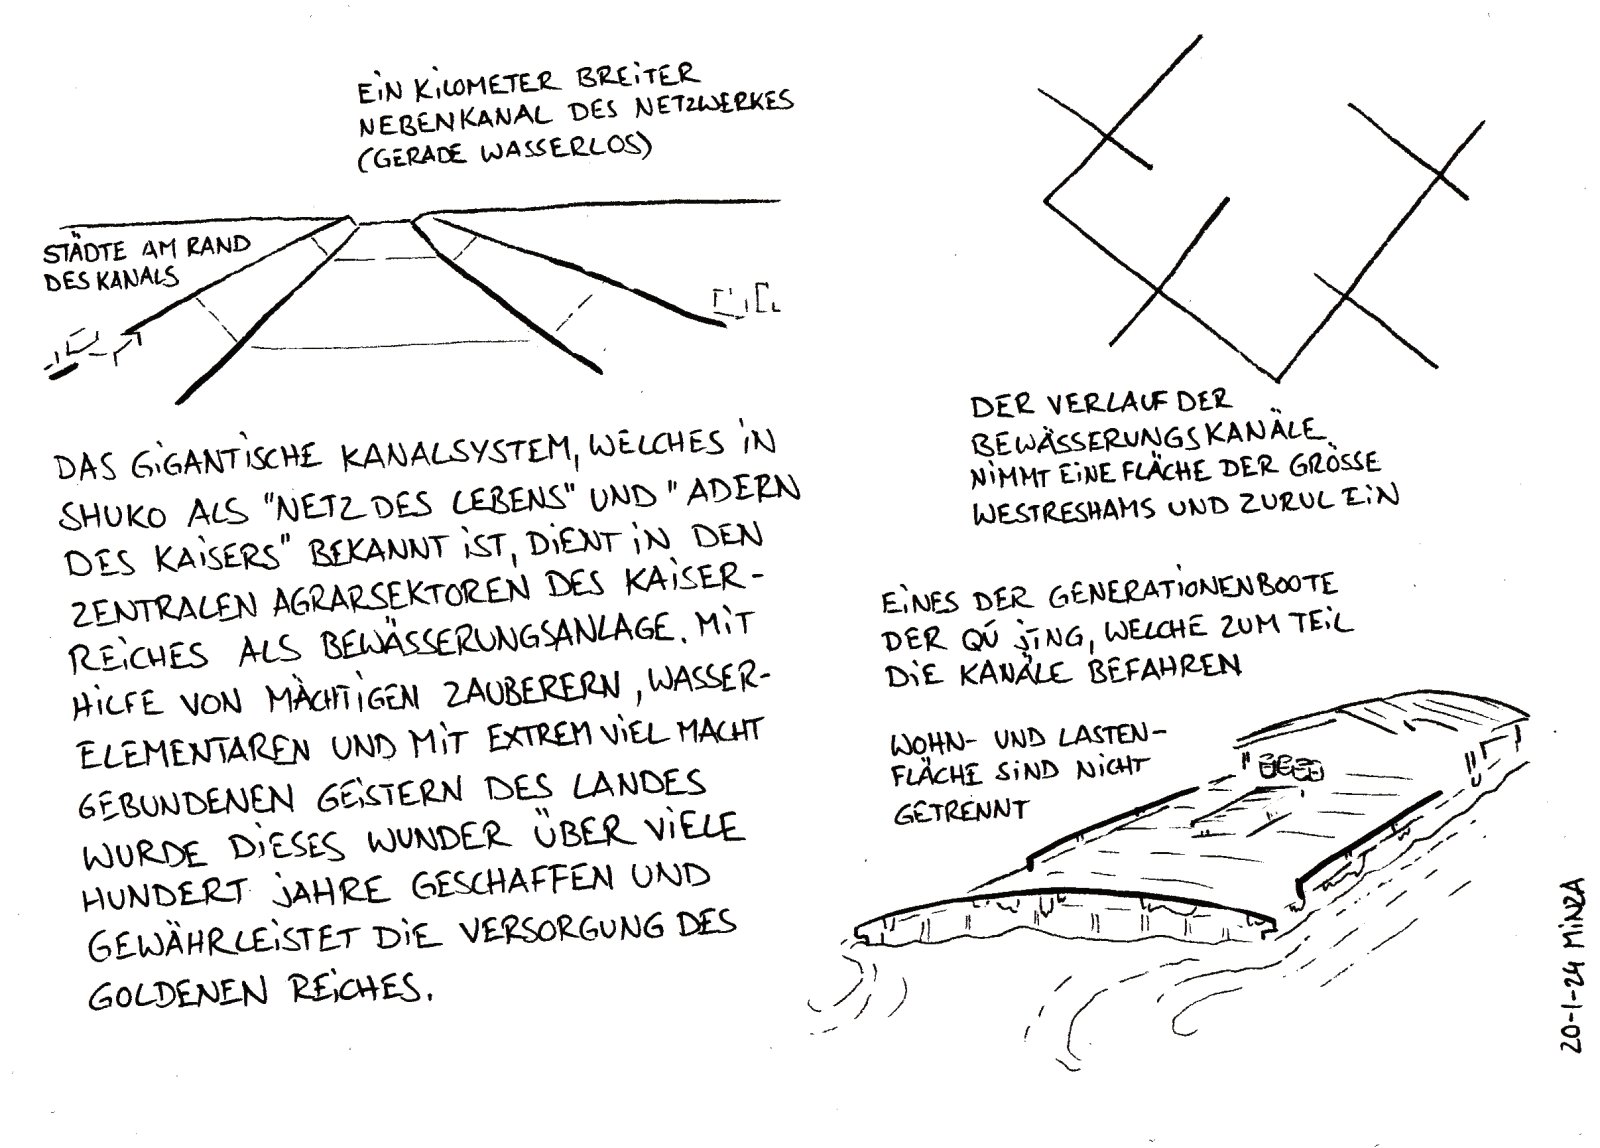 EIN KILOMETER BREITER
NEBENKANAL DES NETZWERKES
(GERADE WASSERLOS)
STÄDTE AM RAND
DES KANALS
DAS GIGANTISCHE KANALSYSTEM, WELCHES IN
SHUKO ALS "NETZ DES LEBENS" UND "ADERN
DES KAISERS" BEKANNT IST, DIENT IN DEN
ZENTRALEN AGRARSEKTOREN DES KAISER-
REICHES ALS BEWÄSSERUNGSANLAGE. MIT
HILFE VON MÄCHTIGEN ZAUBERERN, WASSER-
ELEMENTAREN UND MIT EXTREM VIEL MACHT
GEBUNDENEN GEISTERN DES LANDES
WURDE DIESES WUNDER ÜBER VIELE
HUNDERT JAHRE GESCHAFFEN UND
GEWÄHRLEISTET DIE VERSORGUNG DES
GOLDENEN REICHES.
DER VERLAUF DER
BEWÄSSERUNGSKANÄLE
NIMMT EINE FLÄCHE DER GRÖSSE
WESTRESHAMS UND ZURUL EIN
EINES DER GENERATIONENBOOTE
DER QÚ JING, WELCHE ZUM TEIL
DIE KANÄLE BEFAHREN
WOHN- UND LASTEN-
FLÄCHE SIND NICHT
GETRENNT
20-1-24 MINZA